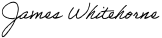 James Whitehorne